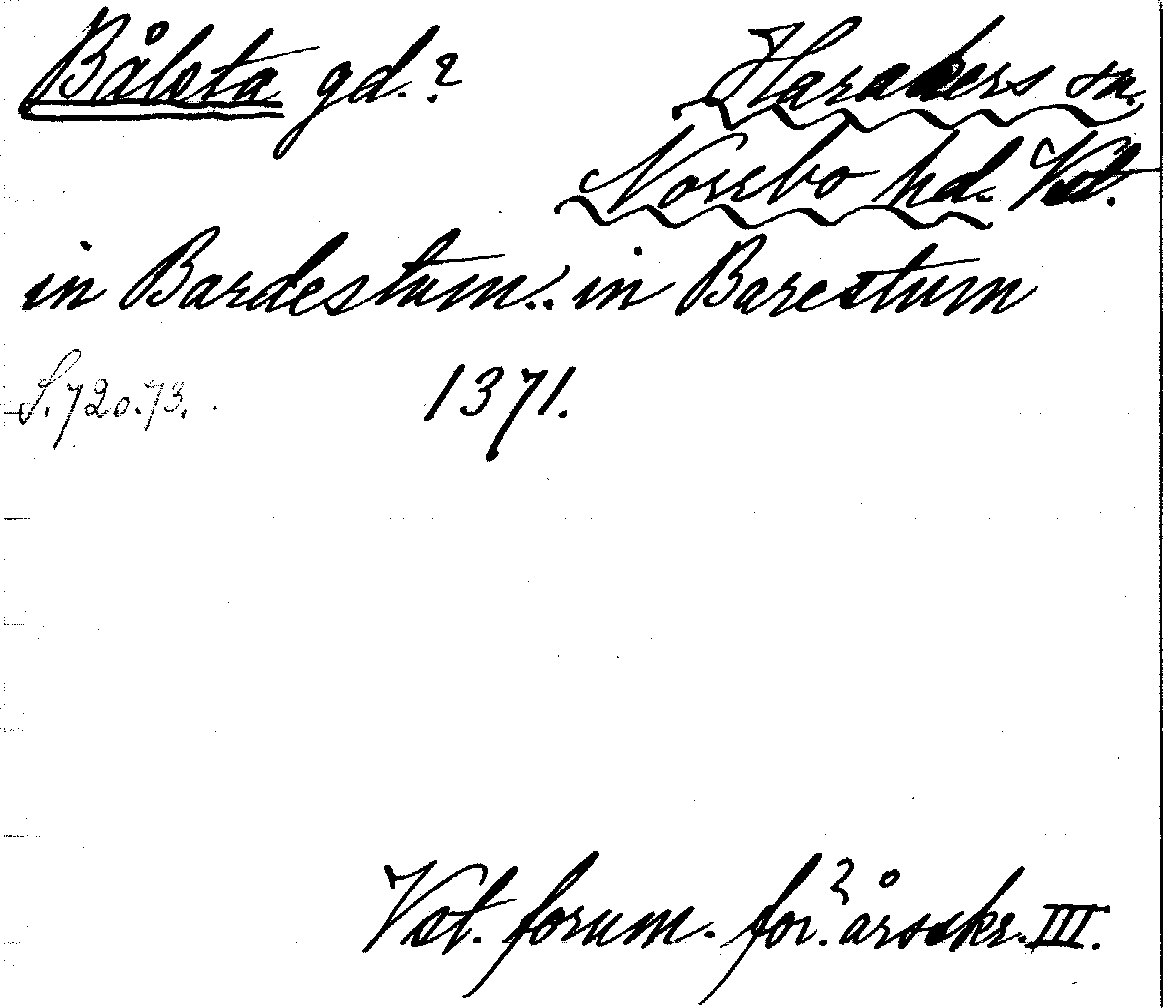 Bålsta gd.? Harakers sn.
Norrbo hd. Vstl.
in Bardestum.. in Barestum
S. 720.73. 1371.
Vst. fornm. för:s årsskr. III.